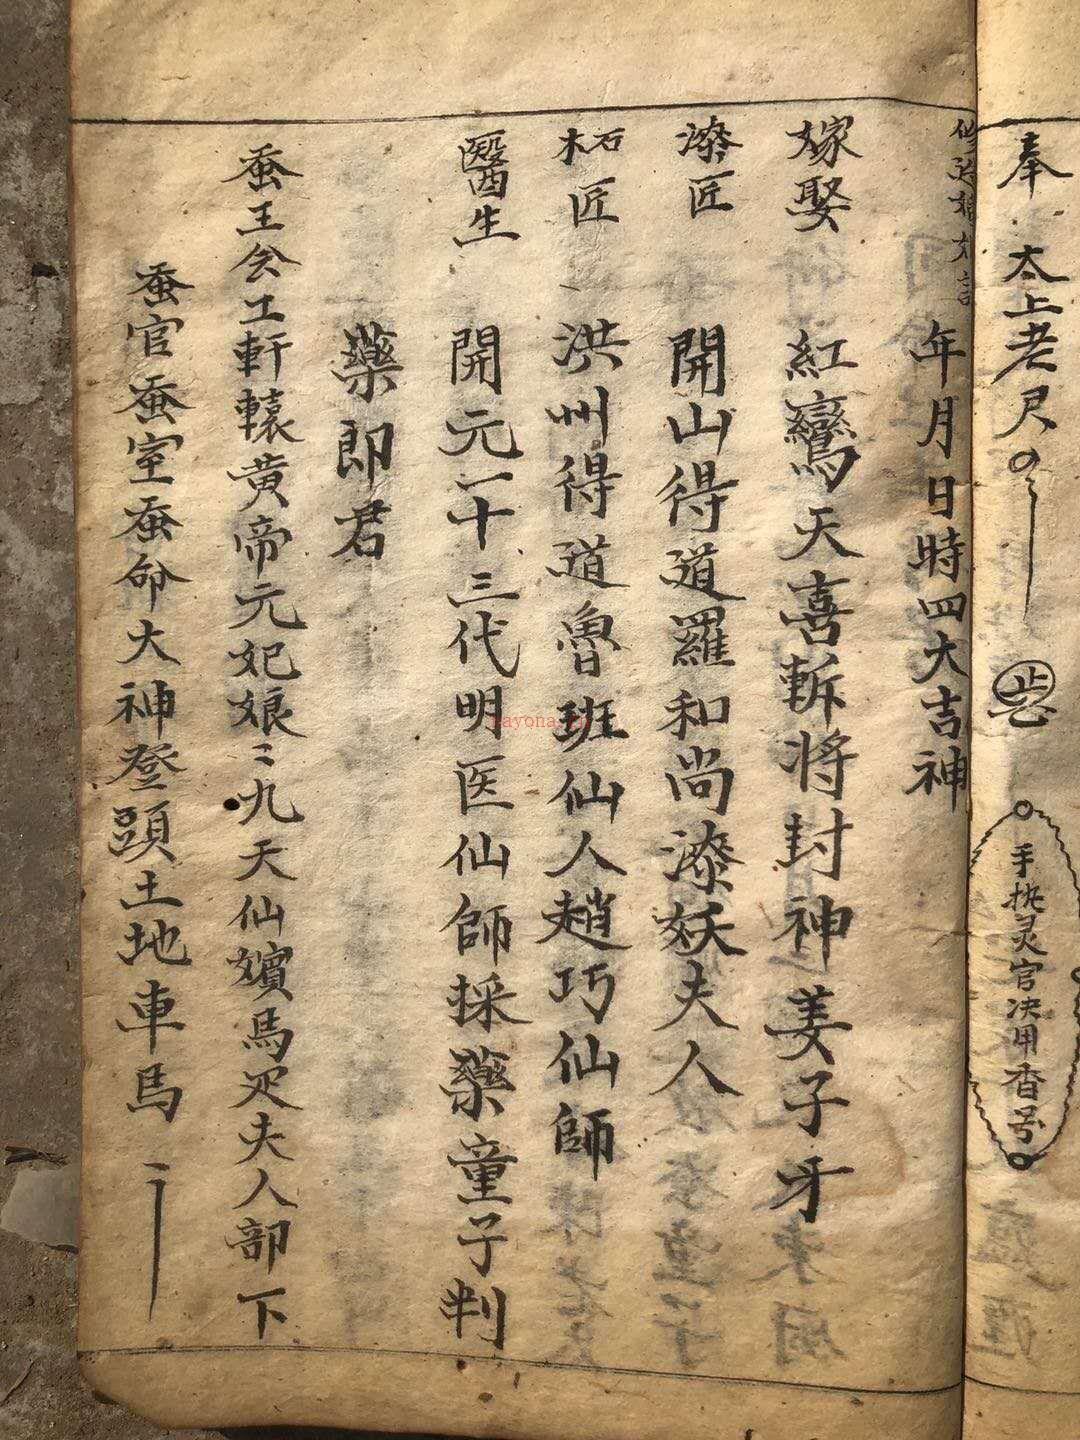 奉 太上老君
手执灵官决用香号
年月日時四大吉神
嫁娶 紅鸞天喜斬將封神姜子牙
漆匠 開山得道羅和尚漆妖夫人
木石匠 洪州得道魯班仙人趙巧仙師
醫生 開元一十三代明医仙師採藥童子判
藥郎君
蚕王会工軒轅黄帝元妃娘〻九天仙嬪馬足夫人部下
蚕官蚕室蚕命大神登頭土地車馬